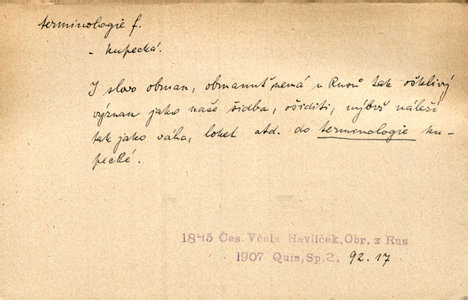 terminologie f.
- kupecká.
I slovo obman, obmanut nemá u Rusů tak ošklivý
význam jako naše šidba, ošiditi, nýbrž náleží
tak jako váha, loket atd. do terminologie ku-
pecké.
1845 Čes. Včela Havlíček, Obr. z Rus
1907 Quis, Sp. 2. 92.17